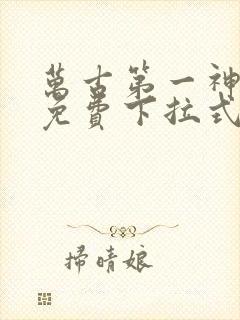 萬古第一神
免費下拉式
掃晴娘